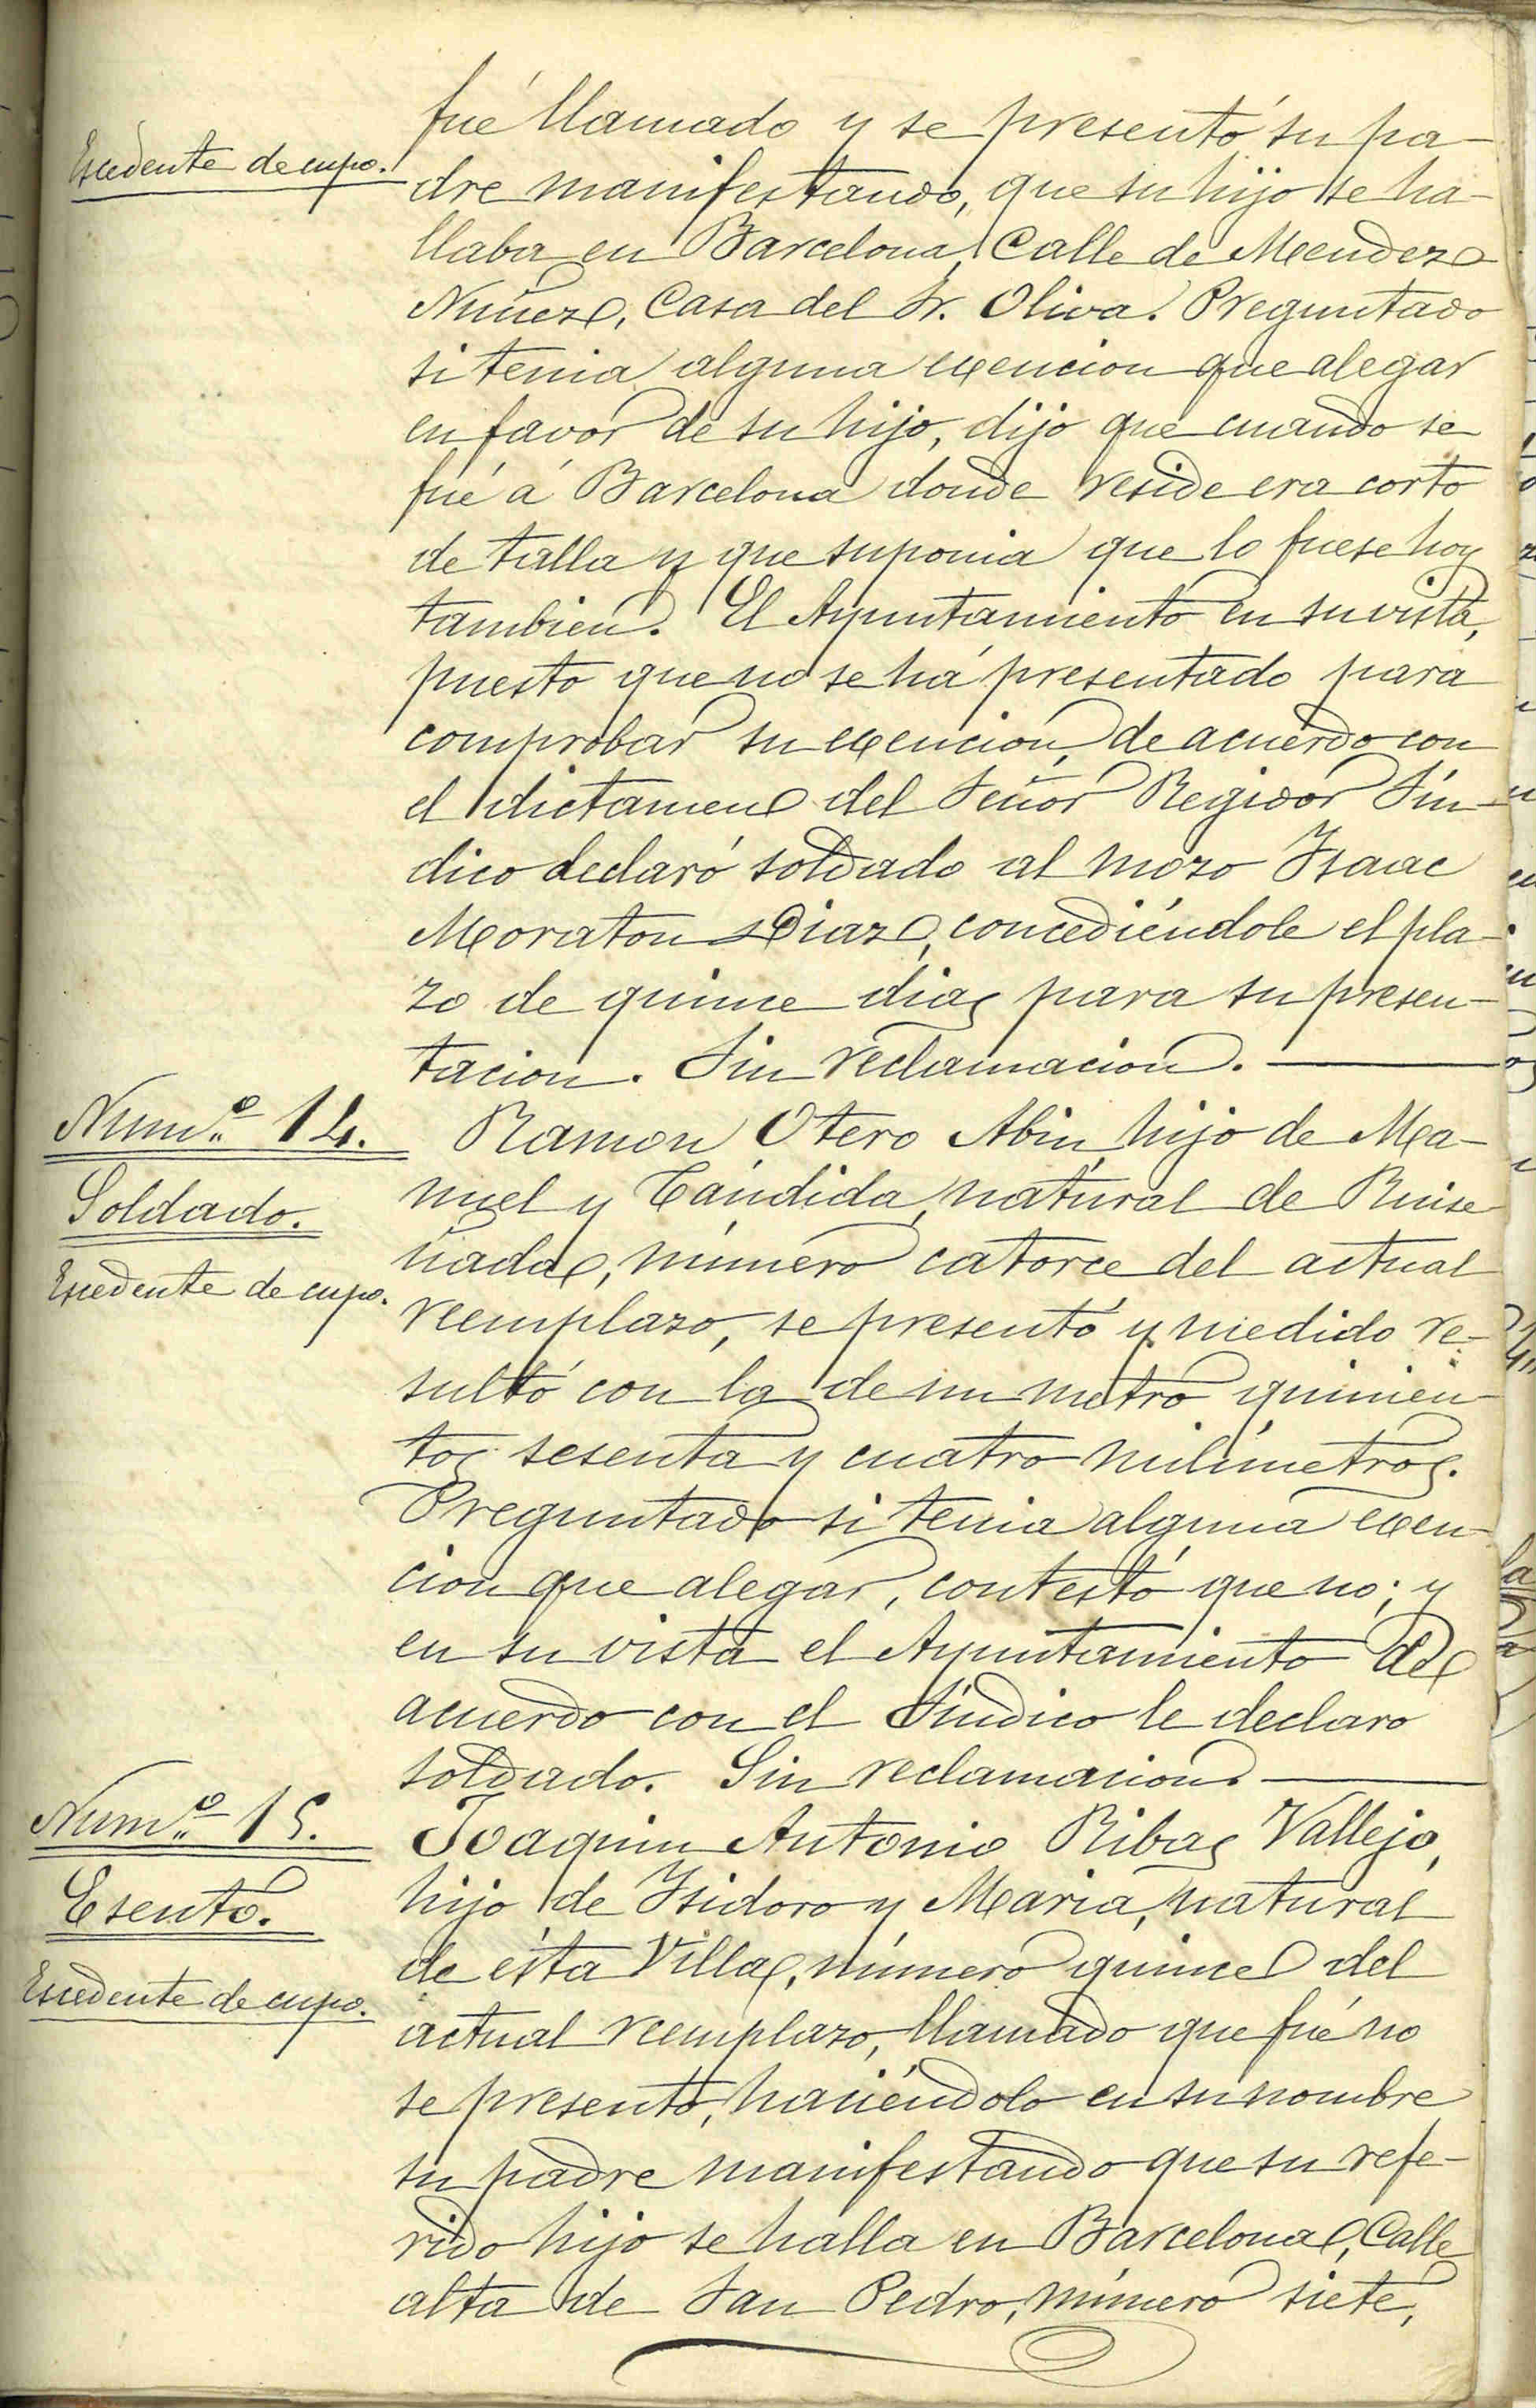 fué llamado y se presentó su pa-
Escedente de cupo.
dre manifestando, que su hijo se ha-
llaba en Barcelona, Calle de Mendez
Nuñez, Casa del Sr. Oliva. Preguntado
si tenia alguna exencion que alegar
en favor de su hijo, dijo que cuando se
fué á Barcelona donde reside era corto
de talla y que suponia que lo fuese hoy
tambien. El Ayuntamiento en su vista,
puesto que no se há presentado para
comprobar su exencion, de acuerdo con
el dictamen del Señor Regidor Sín-
dico declaró soldado al mozo Isaac
Moraton Diaz, concediéndole el pla-
zo de quince dias para su presen-
tacion. Sin reclamacion.
Num.º 14.
Soldado.
Escedente de cupo.
Ramon Otero Abin, hijo de Ma-
nuel y Cándida, natural de Ruise
ñada, número catorce del actual
reemplazo, se presentó y medido re-
sultó con la de un metro quinien-
tos sesenta y cuatro milímetros.
Preguntado si tenia alguna exen-
cion que alegar, contestó que no; y
en su vista el Ayuntamiento de
acuerdo con el Síndico le declaro
soldado. Sin reclamacion.
Num.º 15.
Esento.
Escedente de cupo.
Joaquin Antonio Ribas Vallejo,
hijo de Isidoro y Maria, natural
de ésta Villa, número quince del
actual reemplazo, llamado que fué no
se presentó, haciéndolo en su nombre
su padre manifestando que su refe-
rido hijo se halla en Barcelona, Calle
alta de San Pedro, número siete,